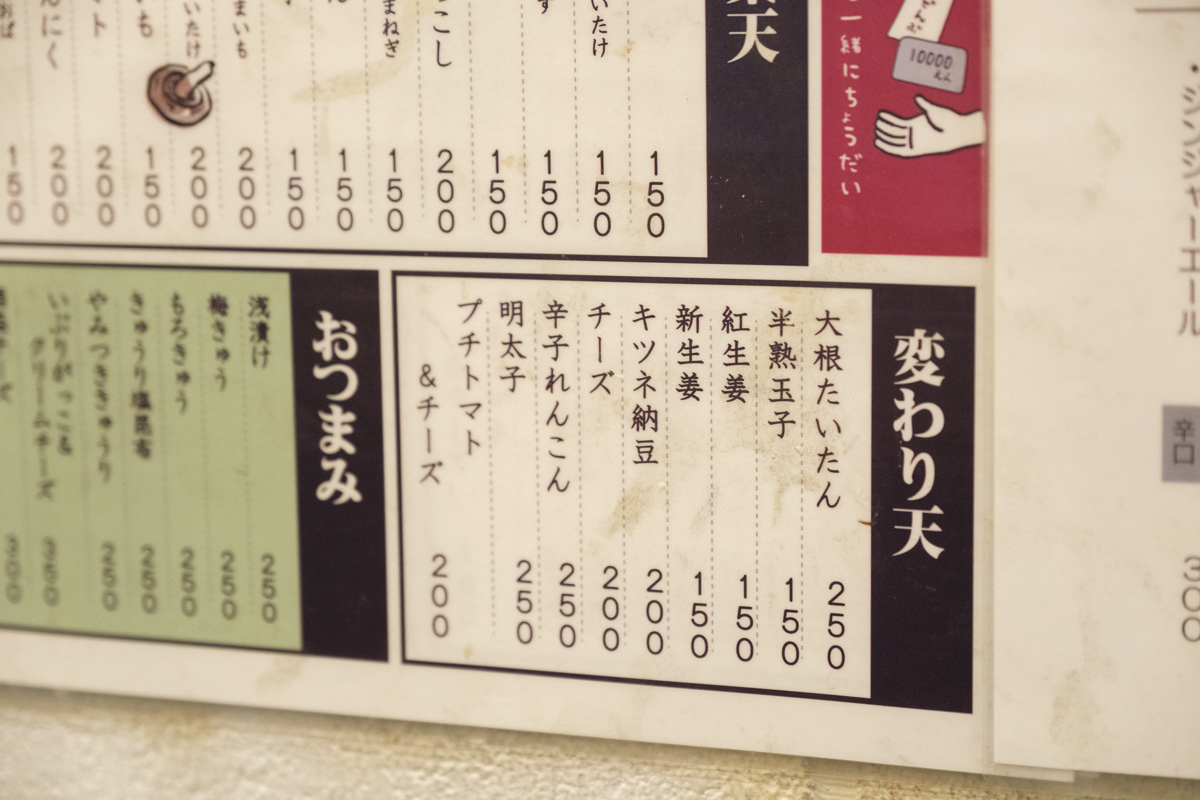 一緒にちょうだい
10000
えん
ジンジャーエール
辛口
300
天
いたけ
150
150
150
150
こし
200
まねぎ
150
150
150
まいも
200
いたけ
200
も
150
ト
200
にく
200
150
変わり天
大根たいたん
250
半熟玉子
150
紅生姜
150
新生姜
150
キツネ納豆
200
チーズ
200
辛子れんこん
250
明太子
250
プチトマト
&チーズ
200
おつまみ
浅漬け
250
梅きゅう
250
もろきゅう
250
きゅうり塩昆布
250
やみつききゅうり
250
いぶりがっこ&
クリームチーズ
350
300